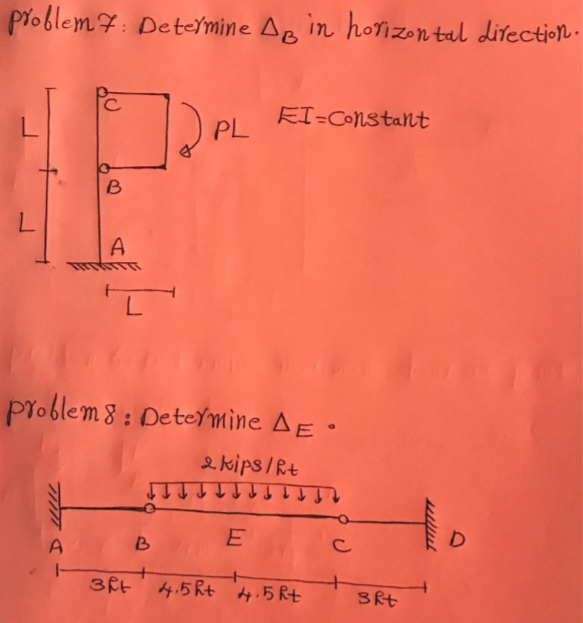 Problem 7: Determine ΔB in horizontal direction.
C
L
PL
EI=Constant
B
L
A
L
Problem 8: Determine ΔE.
2 kips/ft
A B E C D
3ft 4.5ft 4.5ft 3ft